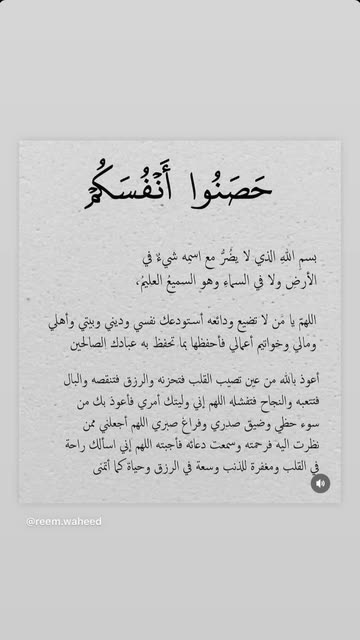 حَصَنُوا أَنْفُسَكُمْ
بسمِ اللهِ الذي لا يضُرُّ مع اسمه شيءٌ في
الأرضِ ولا في السماءِ وهو السميعُ العليمُ،
اللهمّ يا من لا تضيع ودائعه أستودعك نفسي وديني وبيتي وأهلي
ومالي وخواتيم أعمالي فأحفظها بما تحفظ به عبادك الصالحين
أعوذ بالله من عين تصيب القلب فتحزنه والرزق فتنقصه والبال
فتتعبه والنجاح فتفشله اللهم إني وليتك أمري فأعوذ بك من
سوء حظي وضيق صدري وفراغ صبري اللهم أجعلني ممن
نظرت اليه فرحمته وسمعت دعائه فأجبته اللهم إني اسألك راحة
في القلب ومغفرة للذنب وسعة في الرزق وحياة كما أتمنى
@reem.waheed